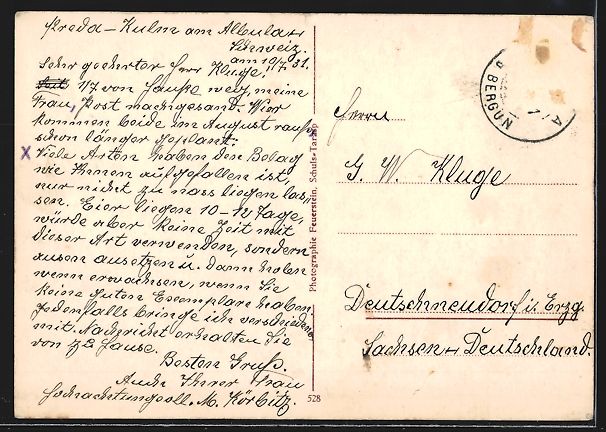 Preda - Kulm am Albula
Schweiz.
am 10/7 31.
Sehr geehrter Herr Kluge,
Seit 1/7 von Hause weg, meine
Frau, Post nachgesant. Wier
kommen beide im August rauf,
schon länger geplant:
X Viele Arten haben den Belag
wie Ihnen aufgefallen ist,
nur nicht zu nass liegen las-
sen. Eier liegen 10-12 Tage,
würde aber keine Zeit mit
dieser Art verwenden, sondern
ausen aussetzen u. dann holen
wenn erwachsen, wenn Sie
keine guten Exemplare haben
jedenfalls bringe ich verschiedene
mit. Nachricht erhalten Sie
von zu Hause.
Besten Gruß.
Auch Ihrer Frau
Hochachtungsvoll. M. Körbitz.
Photographie Feuerstein, Schuls-Tarasp
528
BERGÜN
Herrn
G. W. Kluge
Deutschneudorf i. Erzg.
Sachsen Deutschland.